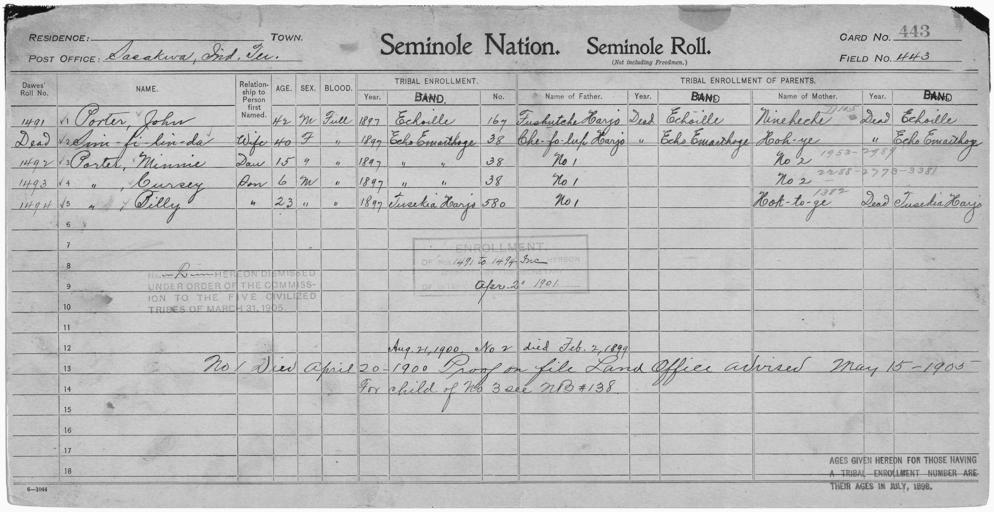 RESIDENCE: TOWN. Seminole Nation. Seminole Roll. CARD NO. 443
POST OFFICE: Sasakwa, Ind. Ter. (Not including Freedmen.) FIELD NO. 443
Dawes' Roll No. NAME. Relationship to Person first Named. AGE. SEX. BLOOD. TRIBAL ENROLLMENT. TRIBAL ENROLLMENT OF PARENTS.
Year. BAND. No. Name of Father. Year. BAND Name of Mother. Year. BAND
1491 1 Porter, John 42 M Full 1897 Echoille 167 Tusbutche Harjo Dead Echoille Nineheche Dead Echoille
Dead 2 Sim-fi-lin-da Wife 40 F " 1897 Echo Emarthoge 38 Che-fo-lup Harjo " Echo Emarthoge Hok-ye " Echo Emarthoge
1492 3 Porter, Minnie Dau 15 " " 1897 " " 38 No 1 No 2
1493 4 " , Cursey Son 6 M " 1897 " " 38 No 1 No 2
1494 5 " , Tilly " 23 " " 1897 Tusekia Harjo 580 No 1 Hok-to-ge Dead Tusekia Harjo
6
7
ENROLLMENT.
8 1491 to 1494 Inc HEREON
No. 2 HEREON DISMISSED
UNDER ORDER OF THE COMMISS-
9
ION TO THE FIVE CIVILIZED Apr. 2 1901
TRIBES OF MARCH 31, 1905.
10
11
12 Aug. 21, 1900. No 2 died Feb. 2, 1899
13 No 1 Died April 20-1900 Proof on file Land Office advised May 15-1905
14 For child of No 3 see NB #138.
15
16
17
18
AGES GIVEN HEREON FOR THOSE HAVING
A TRIBAL ENROLLMENT NUMBER ARE
THEIR AGES IN JULY, 1898.